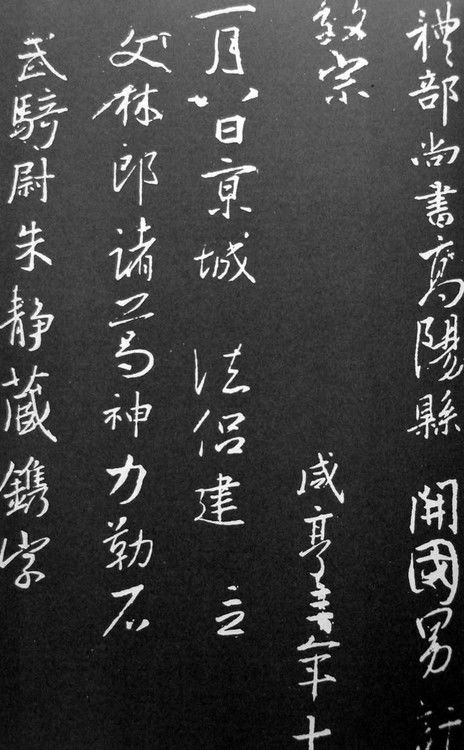 禮部尚書高陽縣 開國男許
敬宗 咸亨三年十
二月八日京城 法侶建 立
文林郎諸葛神力勒石
武騎尉朱靜藏鐫字